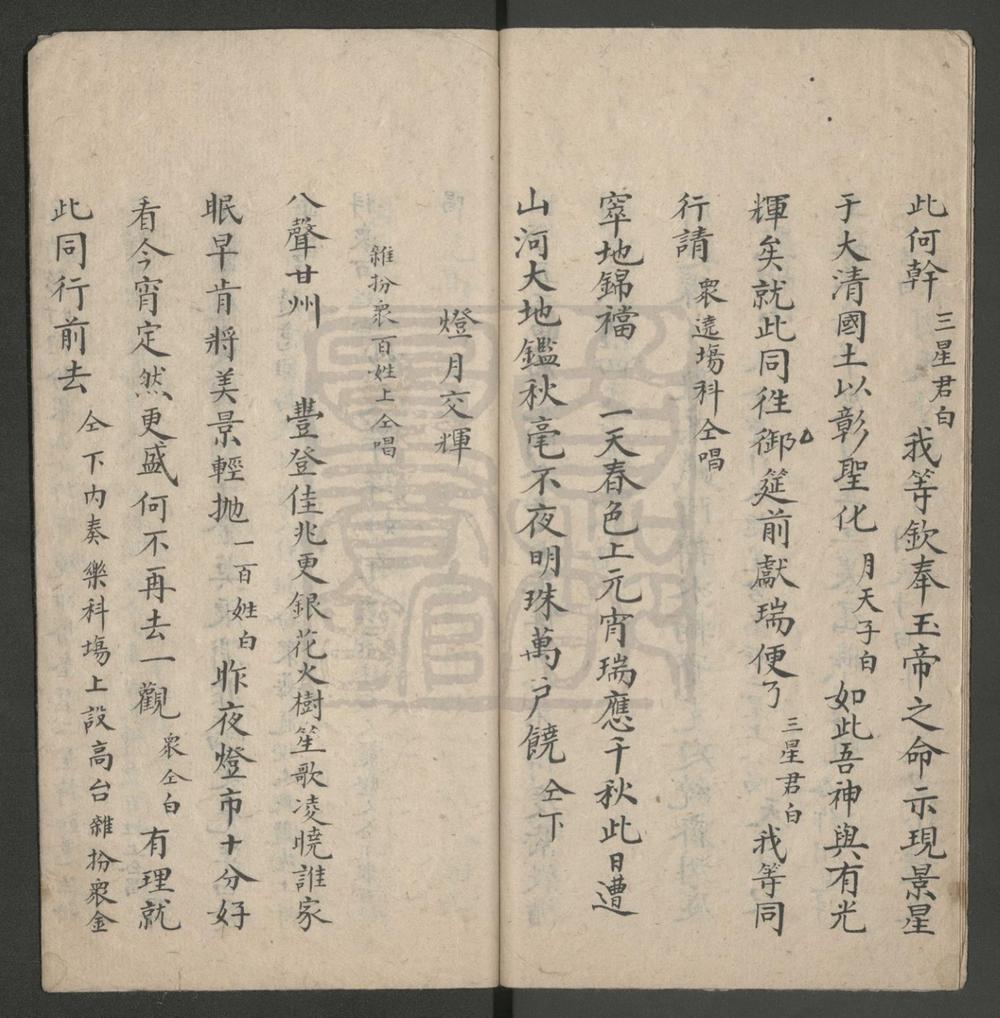 此何幹三星君白我等欽奉玉帝之命示現景星
于大清國土以彰聖化月天子白如此吾神與有光
輝矣就此同徃御筵前獻瑞便了三星君白我等同
行請衆遶塲科仝唱
窣地錦襠 一天春色上元宵瑞應千秋此日遭
山河大地鑑秋毫不夜明珠萬户饒仝下
燈月交輝
雜扮衆百姓上仝唱
八聲甘州 豐登佳兆更銀花火樹笙歌凌曉誰家
眠早肯將美景輕抛一百姓白昨夜燈市十分好
看今宵定然更盛何不再去一觀衆仝白有理就
此同行前去仝下内奏樂科塲上設高台雜扮衆金